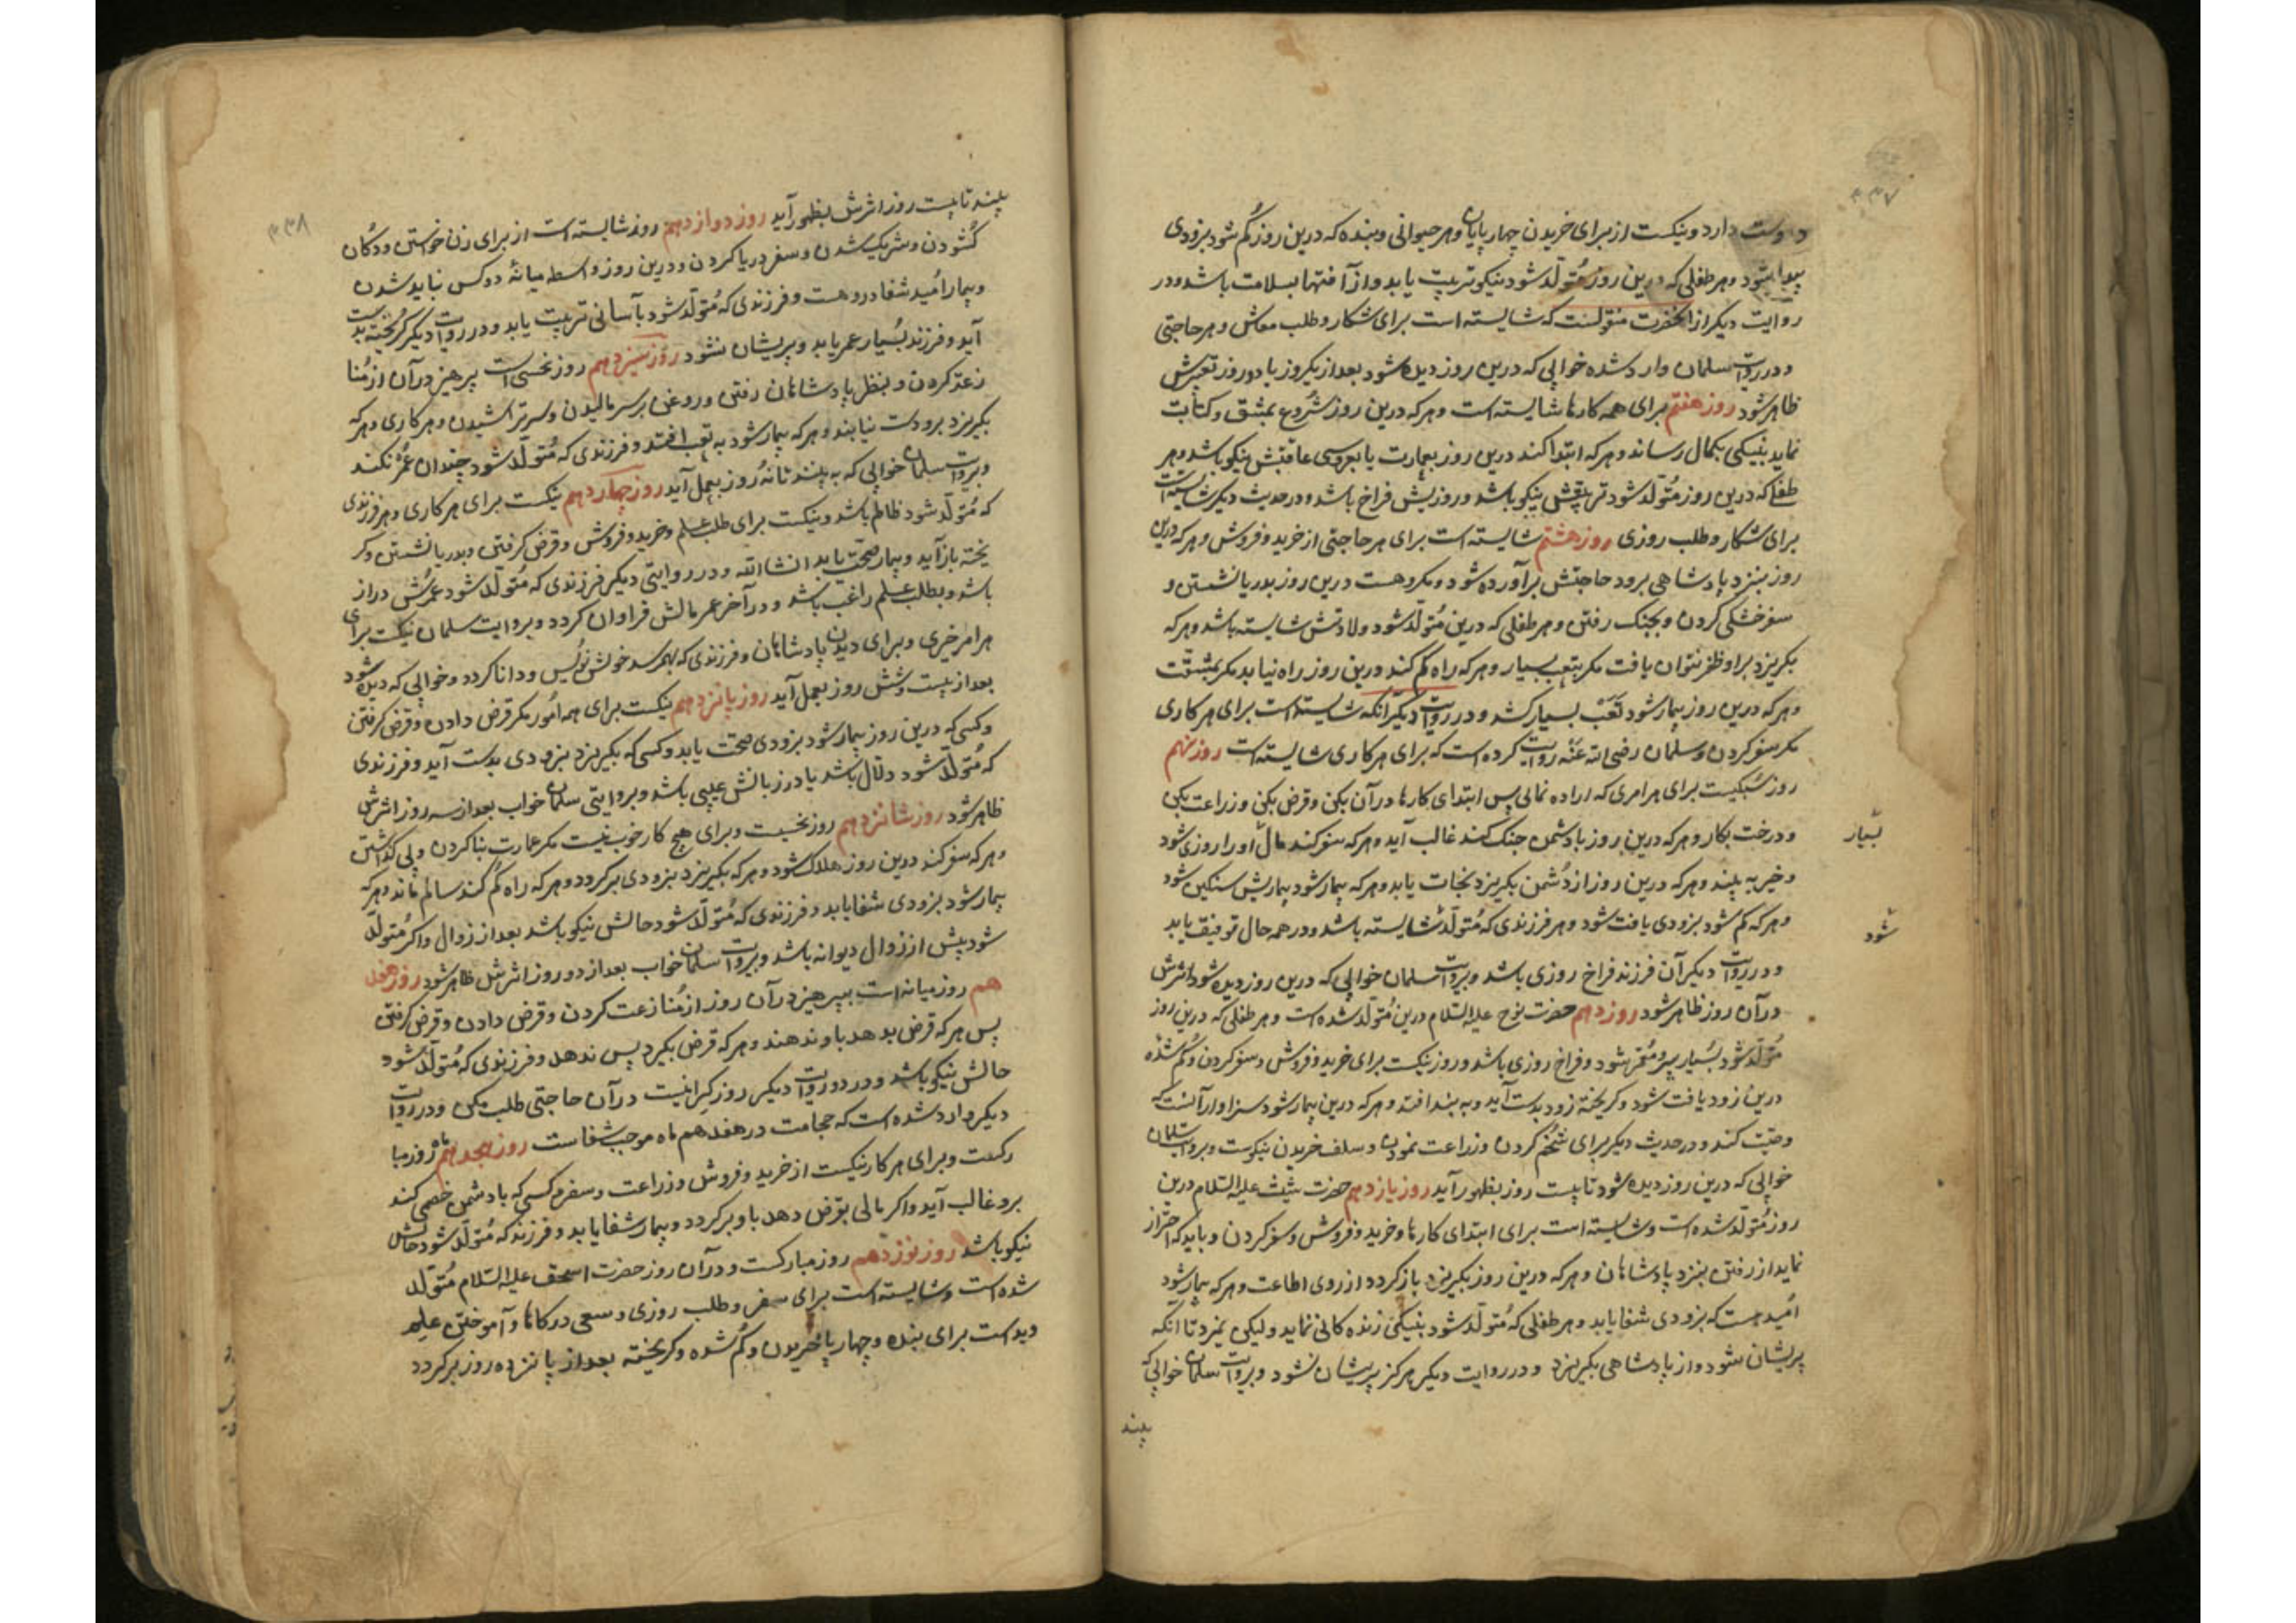 ۳۳۷
دوست دارد و نیکست از برای خریدن چهار پایان و هر حیوانی و بنده که درین روز کم شود بزودی
پیدا شود و هر طفلی که درین روز متولد شود نیکو تربیت یابد و از آفتها بسلامت باشد و در
روایت دیگر از انحضرت منقولست که شایسته است برای شکار و طلب معاش و هر حاجتی
و در روایت سلمان وارد شده خوابی که درین روز دیده شود بعد از یکروز یا دو روز تعبیرش
ظاهر شود روز هفتم برای همه کارها شایسته است و هر که درین روز شروع بمشق و کتابت
نماید بنیکی بکمال رساند و هر که ابتدا کند درین روز بعمارت یا بعروسی عاقبتش نیکو باشد و هر
طفلی که درین روز متولد شود تربیتش نیکو باشد و روزیش فراخ باشد و در حدیث دیگر شایسته است
برای شکار و طلب روزی روز هشتم شایسته است برای هر حاجتی از خرید و فروش و هر که درین
روز بنزد پادشاهی برود حاجتش برآورده شود و مکروهست درین روز بدریا نشستن و
سفر خشکی کردن و بجنک رفتن و هر طفلی که درین متولد شود ولادتش شایسته باشد و هر که
بکریزد براو ظفر نتوان یافت مکر بتعب بسیار و هر که راه کم کند درین روز راه نیابد مکر بمشقت
و هر که درین روز بیمار شود تعب بسیار کشد و در روایت دیگر آنکه شایسته است برای هر کاری
مکر سفر کردن و سلمان رضی الله عنه روایت کرده است که برای هر کاری شایسته است روز نهم
روز سبکیست برای هر امری که اراده نمائی پس ابتدای کارها در آن بکن و قرض بکن و زراعت بکن
و درخت بکار و هر که درین روز با دشمن جنک کند غالب آید و هر که سفر کند مال او را روزی شود
بسیار
و خیر به بیند و هر که درین روز از دشمن بکریزد نجات یابد و هر که بیمار شود بیماریش سنکین شود
و هر که کم شود بزودی یافت شود و هر فرزندی که متولد شایسته باشد و در همه حال توفیق یابد
شود
و در روایت دیگر آن فرزند فراخ روزی باشد و بروایت سلمان خوابی که درین روز دیده شود اثرش
در آن روز ظاهر شود روز دهم حضرت نوح علیه السلام درین متولد شده است و هر طفلی که درین روز
متولد شود بسیار پیر و معمر شود و فراخ روزی باشد و روز نیکست برای خرید و فروش و سفر کردن و کم شده
درین زود یافت شود و کریخته زود بدست آید و به بند افتد و هر که درین بیمار شود سزاوار آنست که
وصیت کند و در حدیث دیگر برای تخم کردن و زراعت نمودن و سلف خریدن نیکوست و بروایت سلمان
خوابی که درین روز دیده شود تا بیست روز بظهور آید روز یازدهم حضرت شیث علیه السلام درین
روز متولد شده است و شایسته است برای ابتدای کارها و خرید و فروش و سفر کردن و باید که احتراز
نماید از رفتن بنزد پادشاهان و هر که درین روز بکریزد باز کردد از روی اطاعت و هر که بیمار شود
امید هست که بزودی شفا یابد و هر طفلی که متولد شود بنیکی زندکانی نماید ولیکن نمیرد تا آنکه
پریشان شود و از پادشاهی بکریزد و در روایت دیگر هرکز پریشان نشود و بروایت سلمان خوابی که
بیند
۳۳۸
بیند تا بیست روز اثرش بظهور آید روز دوازدهم روز شایسته است از برای زن خواستن و دکان
کشودن و شریک شدن و سفر دریا کردن و درین روز واسطه میانه دو کس نباید شدن
و بیمار امید شفا درو هست و فرزندی که متولد شود بآسانی تربیت یابد و در روایت دیگر کریخته بدست
آید و فرزند بسیار عمر یابد و پریشان نشود روز سیزدهم روز نحسی است پرهیز در آن از منا
زعه کردن و بنظر پادشاهان رفتن و روغن برسر مالیدن و سر تراشیدن و هر کاری و هر که
بکریزد برو دست نیابند و هر که بیمار شود به تعب افتد و فرزندی که متولد شود چندان عمر نکند
و بروایت سلمان خوابی که به بیند تا نه روز بعمل آید روز چهاردهم نیکست برای هر کاری و هر فرزندی
که متولد شود ظالم باشد و نیکست برای طلب علم و خرید و فروش و قرض کرفتن و بدریا نشستن و کر
یخته باز آید و بیمار صحت یابد انشا الله و در روایتی دیگر فرزندی که متولد شود عمرش دراز
باشد و بطلب علم راغب باشد و در آخر عمر مالش فراوان کردد و بروایت سلمان نیکست برای
هر امر خیری و برای دیدن پادشاهان و فرزندی که بهم رسد خوش نویس و دانا کردد و خوابی که دیده شود
بعد از بیست و شش روز بعمل آید روز پانزدهم نیکست برای همه امور مکر قرض دادن و قرض کرفتن
و کسی که درین روز بیمار شود بزودی صحت یابد و کسی که بکریزد بزودی بدست آید و فرزندی
که متولد شود دلال باشد یا در زبانش عیبی باشد و بروایتی سلمان خواب بعد از سه روز اثرش
ظاهر شود روز شانزدهم روز نحسیت و برای هیچ کار خوب نیست مکر عمارت بنا کردن و پی کذاشتن
و هر که سفر کند درین روز هلاک شود و هر که بکریزد بزودی برکردد و هر که راه کم کند سالم ماند و هر که
بیمار شود بزودی شفا یابد و فرزندی که متولد شود حالش نیکو باشد بعد از زوال و اکر متولد
شود پیش از زوال دیوانه باشد و بروایت سلمان خواب بعد از دو روز اثرش ظاهر شود روز هفد
هم روز میانه است بپرهیز در آن روز از منازعت کردن و قرض دادن و قرض کرفتن
پس هر که قرض بدهد باو ندهند و هر که قرض بکیرد پس ندهد و فرزندی که متولد شود
حالش نیکو باشد و در دو روایت دیگر روز کرانیست در آن حاجتی طلب مکن و در روایت
دیگر وارد شده است که حجامت در هفدهم ماه موجب شفاست روز هیجدهم ماه روز مبا
رکست و برای هر کار نیکست از خرید و فروش و زراعت و سفر و کسی که با دشمن خصمی کند
برو غالب آید و اکر مالی بقرض دهد باو برکردد و بیمار شفا یابد و فرزند که متولد شود حالش
نیکو باشد روز نوزدهم روز مبارکست و در آن روز حضرت اسحق علیه السلام متولد
شده است و شایسته است برای سفر و طلب روزی و سعی در کارها و آموختن علم
وید است برای بنده و چهار پا خریدن و کم شده و کریخته بعد از پانزده روز برکردد